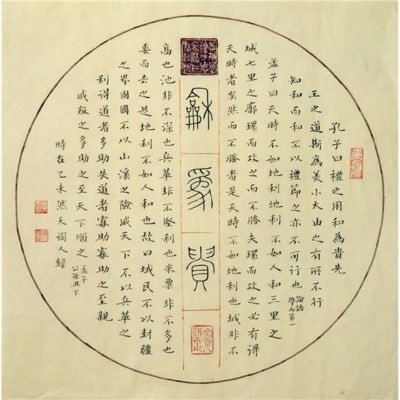 孔子曰禮之用和為貴先
王之道斯為美小大由之有所不行
知和而和不以禮節之亦不可行也
論語
學而第一
孟子曰天時不如地利地利不如人和三里之
城七里之廓環而攻之而不勝夫環而攻之必有得
天時者矣然而不勝者是天時不如地利也城非不
龢為貴
高也池非不深也兵革非不堅利也米粟非不多也
委而去之是地利不如人和也故曰域民不以封疆
之界固國不以山溪之險威天下不以兵革之
利得道者多助失道者寡助寡助之至親
戚叛之多助之至天下順之
孟子
公孫丑下
時在乙未然天人錄